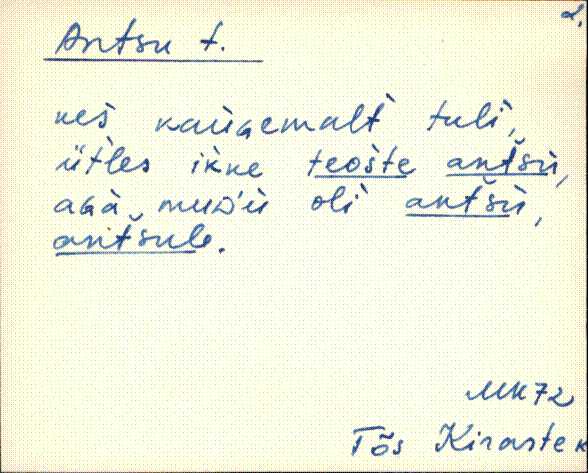 2.
Antsu t.
kes kaugemalt tuli,
ütles ikke teoste antšu,
aga muidu oli antšu,
antšule.
MK72
Tõs Kiraste k